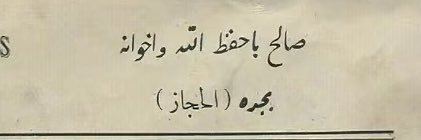 صالح باحفظ الله واخوانه
بجده (الحجاز)
S